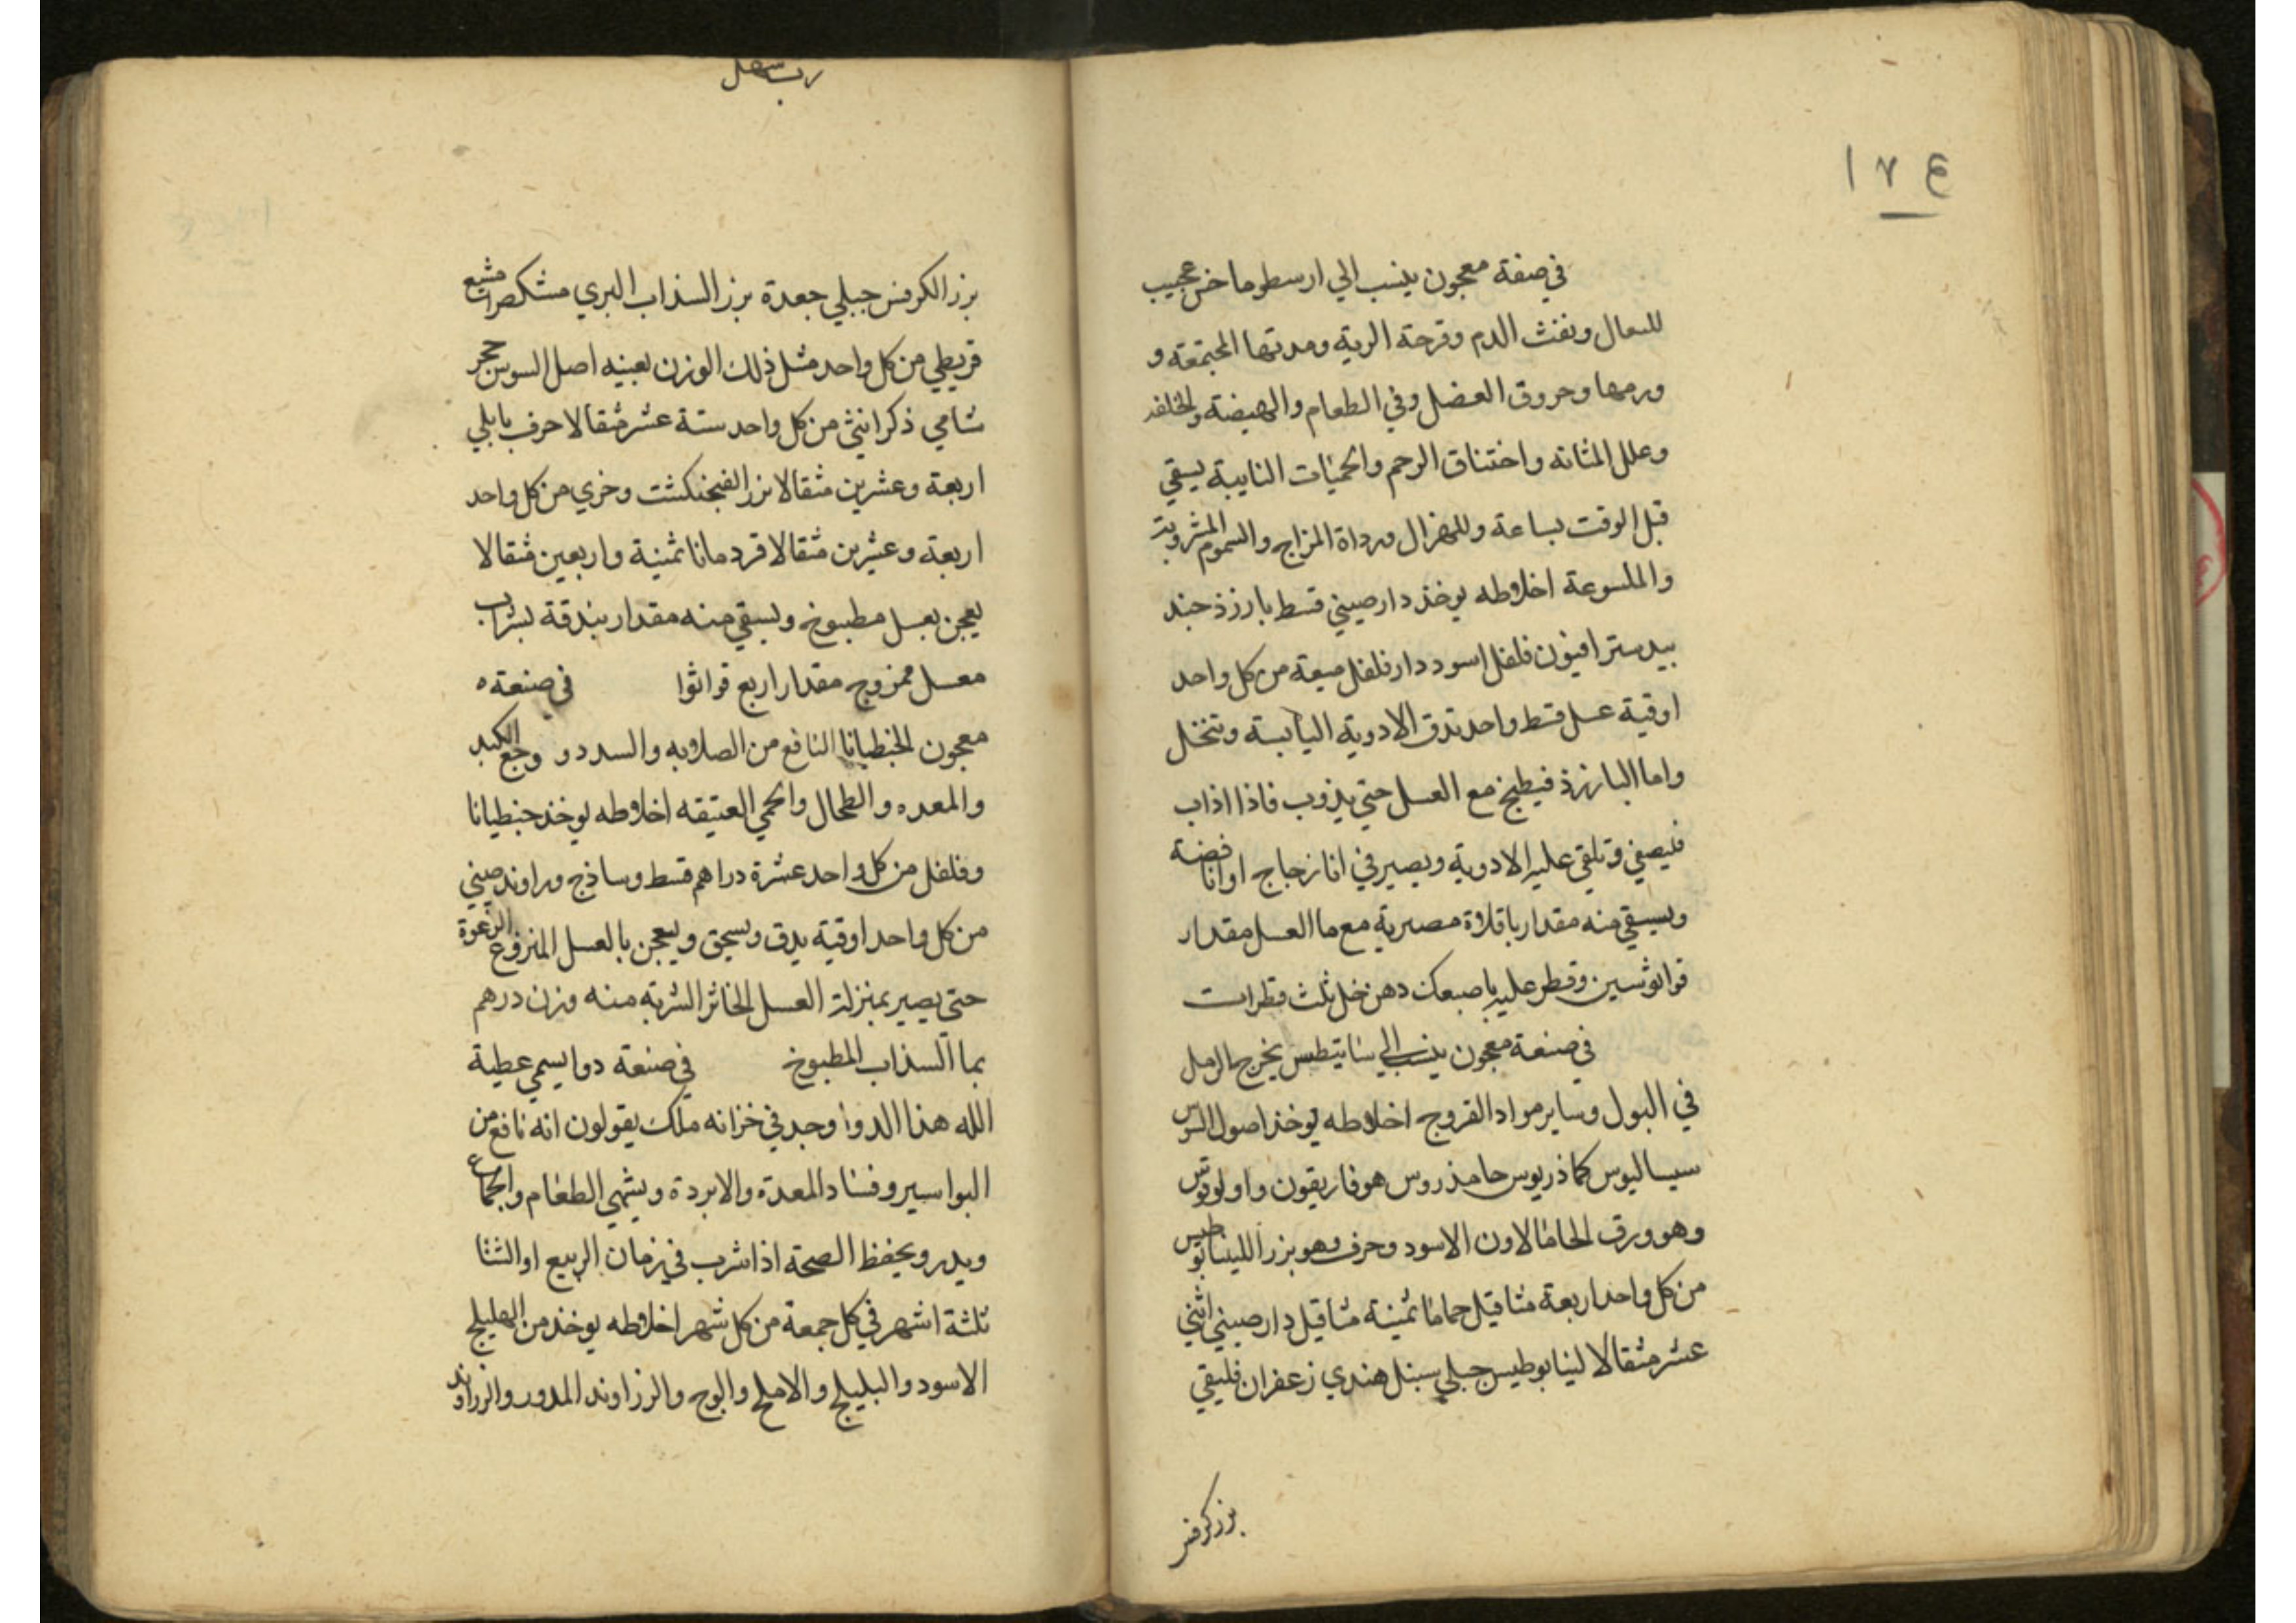 ١٧٤
في صنفة معجون ينسب الي ارسطوماخس عجيب
للسعال ونفث الدم وقرحة الرية ومدتها المجتمعة و
ورمها وحروق العضل وفي الطعام والهيضة والخلفه
وعلل المثانه واختناق الرحم والحميات النايبة يسقي
قبل الوقت بساعة وللهزال ورداة المزاج والسموم المشروبة
والملسوعة اخلاطه يوخذ دارصيني قسط بارزذ جند
بيدستر افيون فلفل اسود دارفلفل ميعة من كل واحد
اوقية عسل قسط واحد تدق الادوية اليابسة وتنخل
واما البارزذ فيطبخ مع العسل حتي يذوب فاذا اذاب
فيصفي وتلقي عليه الادوية ويصير في انا زجاج او انا فضة
ويسقي منه مقدار باقلاة مصرية مع ما العسل مقدار
قوانوسين وقطر عليه باصبعك دهن خل ثلث قطرات
في صنعة معجون ينسب الي سانيطس يخرج الرمل
في البول وساير مواد القروح اخلاطه يوخذ اصول السوس
سيساليوس كماذريوس حامذروس هوفاريقون واولوقوس
وهو ورق الحاما لاون الاسود وحرف وهو بزر اللينابوطيس
من كل واحد اربعة مثاقيل حاما ثمنية مثاقيل دارصيني اثني
عشر مثقالا لينابوطيس جبلي سنبل هندي زعفران فليقي
بزر كرفس
رب سهل
بزر الكرفس جبلي جعدة بزر السذاب البري مشكطرامشيع
قريطي من كل واحد مثل ذلك الوزن بعينه اصل السوس حجر
شامي ذكر انثي من كل واحد ستة عشر مثقالا حرف بابلي
اربعة وعشرين مثقالا بزر الفنجنكشت وخري من كل واحد
اربعة وعشرين مثقالا قردمانا ثمنية واربعين مثقالا
يعجن بعسل مطبوخ ويسقي منه مقدار بندقة بشراب
معسل ممزوج مقدار اربع قوانوا في صنعة ه
معجون الخنطيانا النافع من الصلابه والسدد و وجع الكبد
والمعده والطحال والحمي العتيقه اخلاطه يوخذ جنطيانا
وفلفل من كل واحد عشرة دراهم قسط وساذج وراوند صيني
من كل واحد اوقية يدق ويسحق ويعجن بالعسل المنزوع الرغوة
حتي يصير بمنزلة العسل الخاثر الشربه منه وزن درهم
بما السذاب المطبوخ في صنعة دوا يسمي عطية
الله هذا الدوا وجد في خزانه ملك يقولون انه نافع من
البواسير وفساد المعدة والابردة ويشهي الطعام والجماع
ويدر ويحفظ الصحة اذا شرب في زمان الربيع او الشتا
ثلثة اشهر في كل جمعة من كل شهر اخلاطه يوخذ من الهليلج
الاسود والبليلج والاملج والوج والزراوند المدور والزراوند